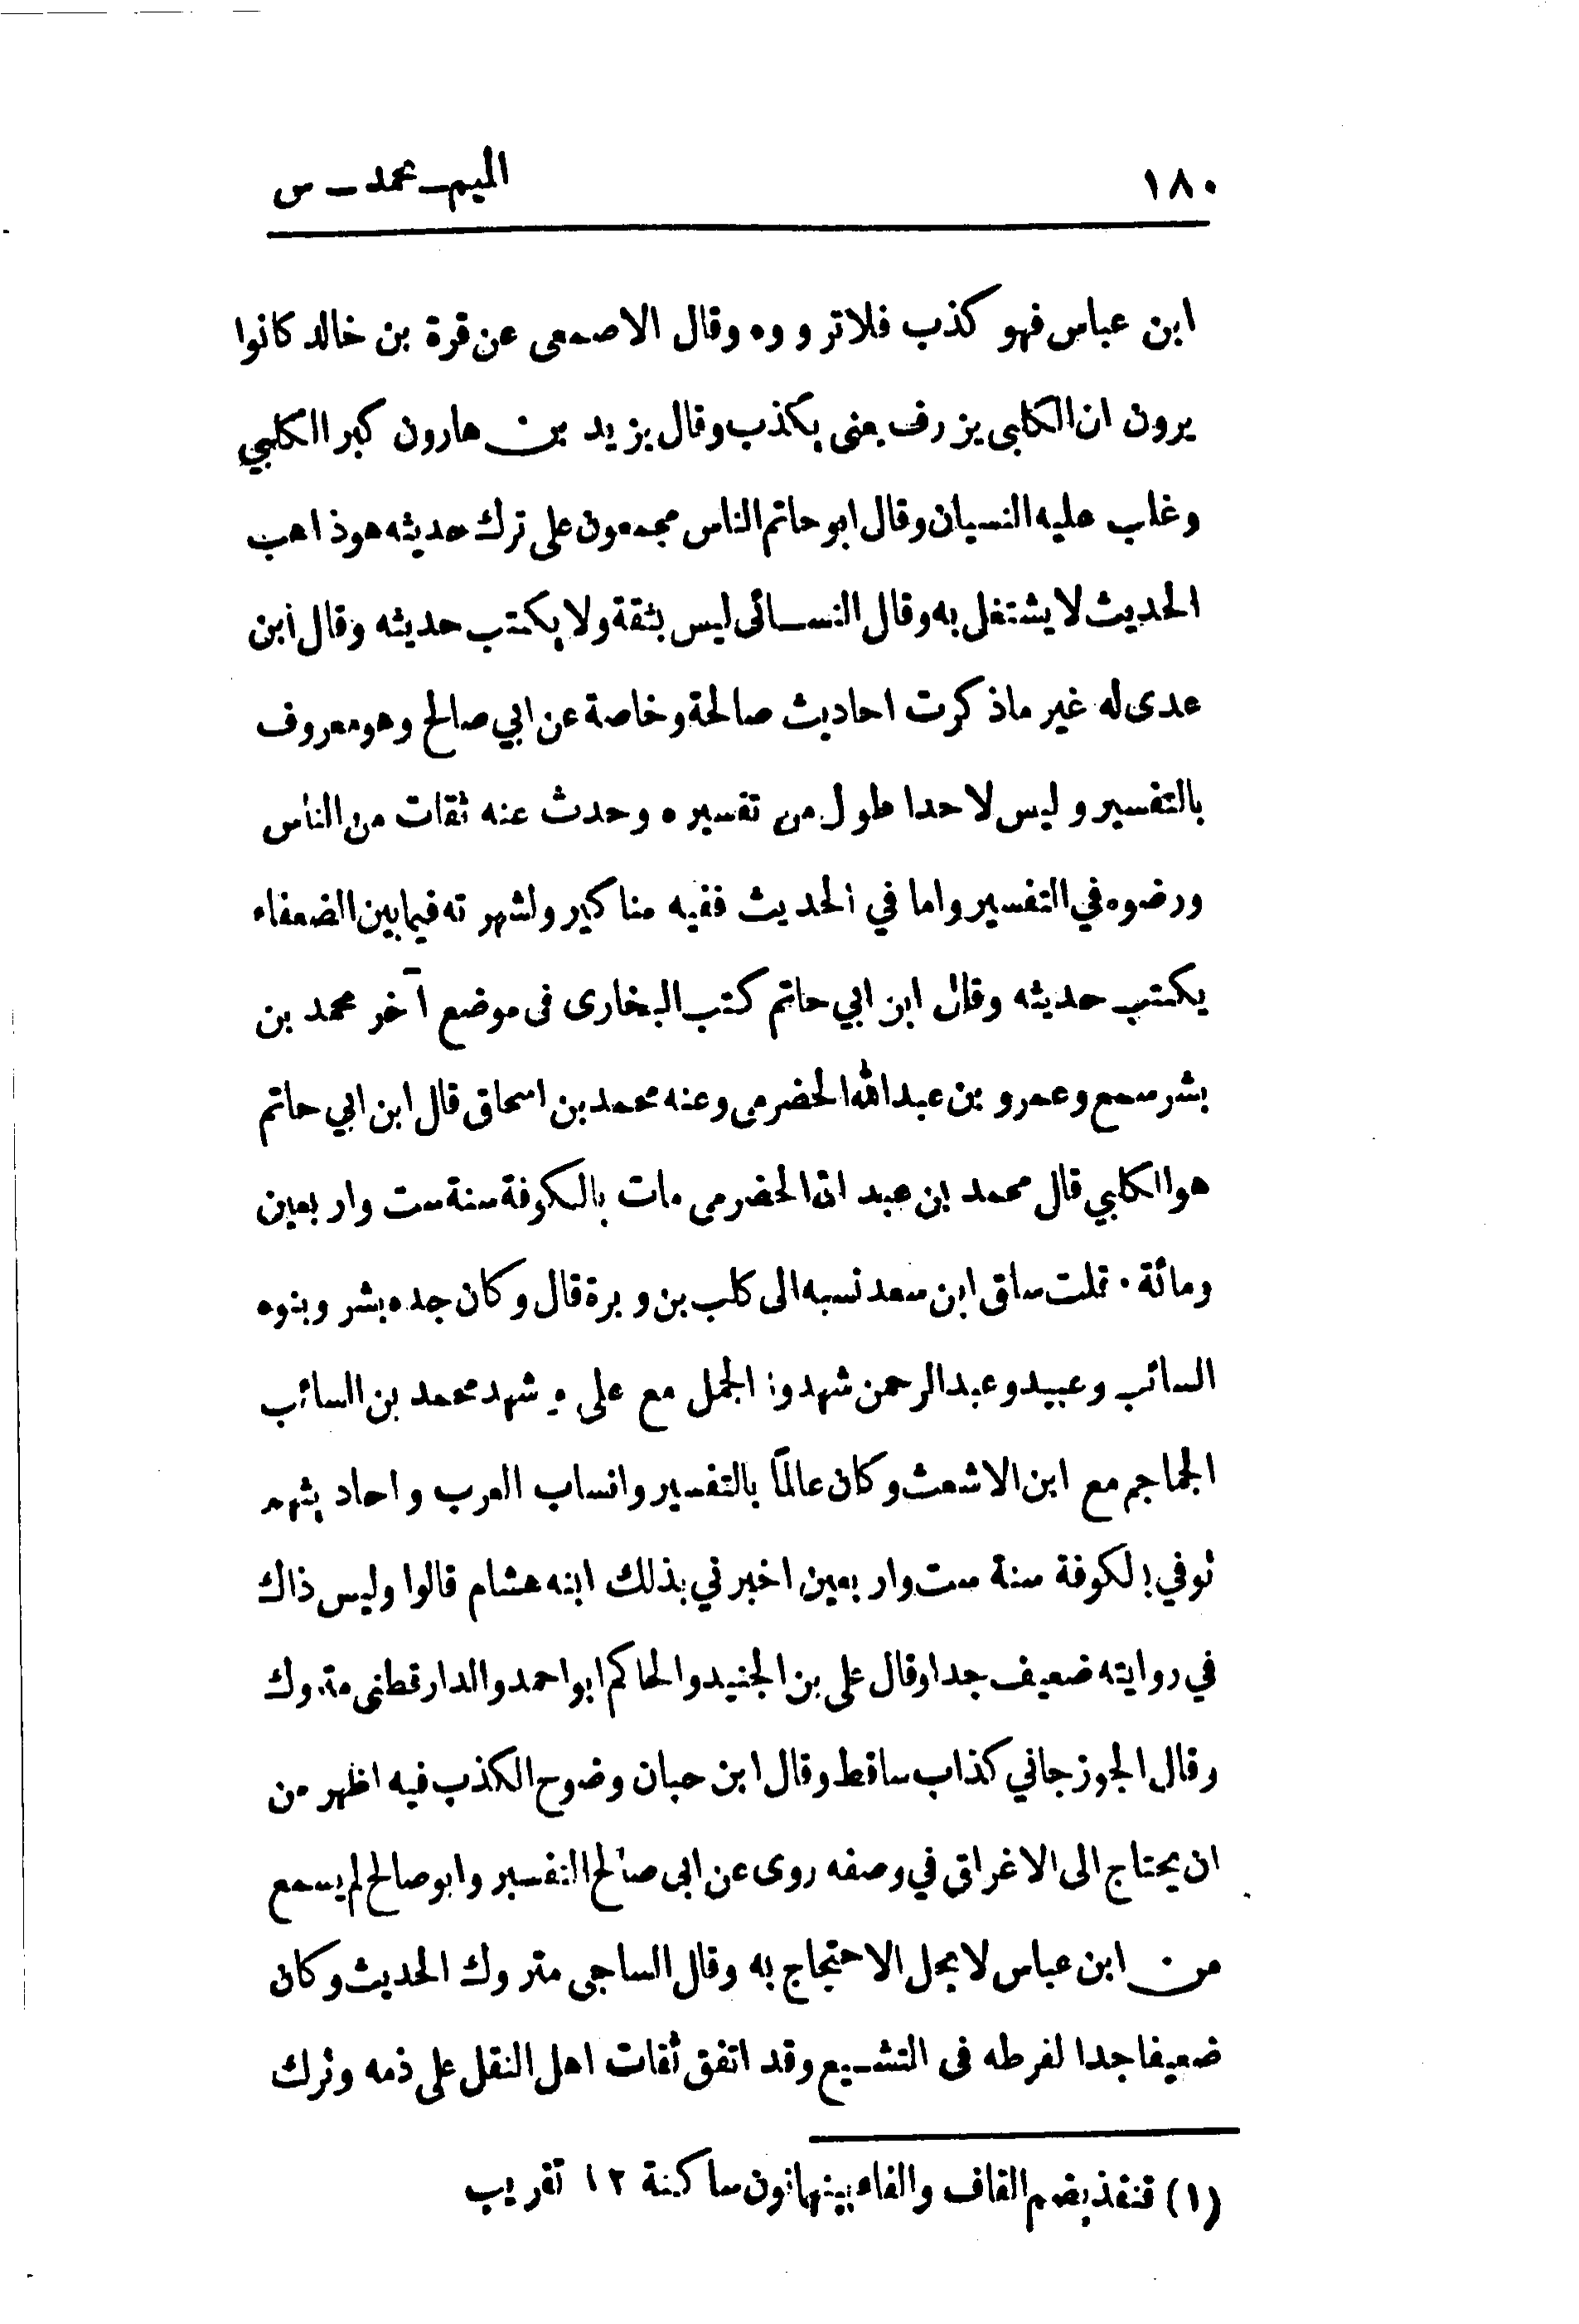 ١٨٠
الميم ـ محمد ـ س
ابن عباس فهو كذب فلا ترووه وقال الاصمعى عن قرة بن خالد كانوا
يرون ان الكلبى يزرف يعنى يكذب وقال يزيد بن هارون كبر الكلبي
وغلب عليه النسيان وقال ابو حاتم الناس مجمعون على ترك حديثه هو ذاهب
الحديث لا يشتغل به وقال النسائى ليس بثقة ولا يكتب حديثه وقال ابن
عدى له غير ماذكرت احاديث صالحة وخاصة عن ابي صالح وهو معروف
بالتفسير وليس لاحد اطول من تفسيره وحدث عنه ثقات من الناس
ورضوه في التفسير واما في الحديث ففيه مناكير ولشهرته فيما بين الضعفاء
يكتب حديثه وقال ابن ابي حاتم كتب البخارى فى موضع آخر محمد بن
بشر سمع وعمرو بن عبدالله الحضرمى وعنه محمد بن اسحاق قال ابن ابي حاتم
هو الكلبي قال محمد بن عبد الله الحضرمى مات بالكوفة سنة ست واربعين
ومائة ٠ قلت ساق ابن سعد نسبه الى كلب بن وبرة قال وكان جده بشر وبنوه
السائب وعبيد وعبد الرحمن شهدوا الجمل مع على وشهد محمد بن السائب
الجماجم مع ابن الاشعث وكان عالمًا بالتفسير وانساب العرب واحاديثهم
توفي بالكوفة سنة ست واربعين اخبرني بذلك ابنه هشام قالوا وليس ذاك
في روايته ضعيف جدا وقال على بن الجنيد والحاكم ابو احمد والدارقطنى متروك
وقال الجوزجاني كذاب ساقط وقال ابن حبان وضوح الكذب فيه اظهر من
ان يحتاج الى الاغراق في وصفه روى عن ابى صالح التفسير وابو صالح لم يسمع
من ابن عباس لا يحل الاحتجاج به وقال الساجى متروك الحديث وكان
ضعيفا جدا لفرطه فى التشيع وقد اتفق ثقات اهل النقل على ذمه وترك
(١) قنفذ بضم القاف والفاء بينهما نون ساكنة ١٢ تقريب